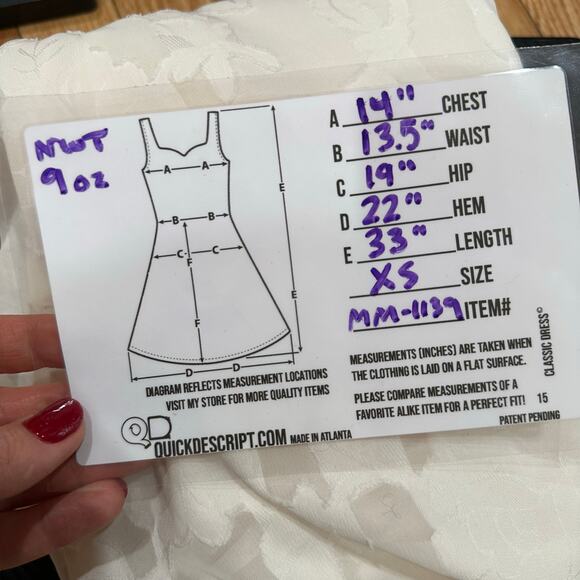 NWT
9 oz
A 14" CHEST
B 13.5" WAIST
C 19" HIP
D 22" HEM
E 33" LENGTH
XS SIZE
MM-1139 ITEM#
A A
B B
C C
F
E
E
F
D D
DIAGRAM REFLECTS MEASUREMENT LOCATIONS
VISIT MY STORE FOR MORE QUALITY ITEMS
QD QUICKDESCRIPT.COM MADE IN ATLANTA
MEASUREMENTS (INCHES) ARE TAKEN WHEN
THE CLOTHING IS LAID ON A FLAT SURFACE.
PLEASE COMPARE MEASUREMENTS OF A
FAVORITE ALIKE ITEM FOR A PERFECT FIT! 15
PATENT PENDING
CLASSIC DRESS©